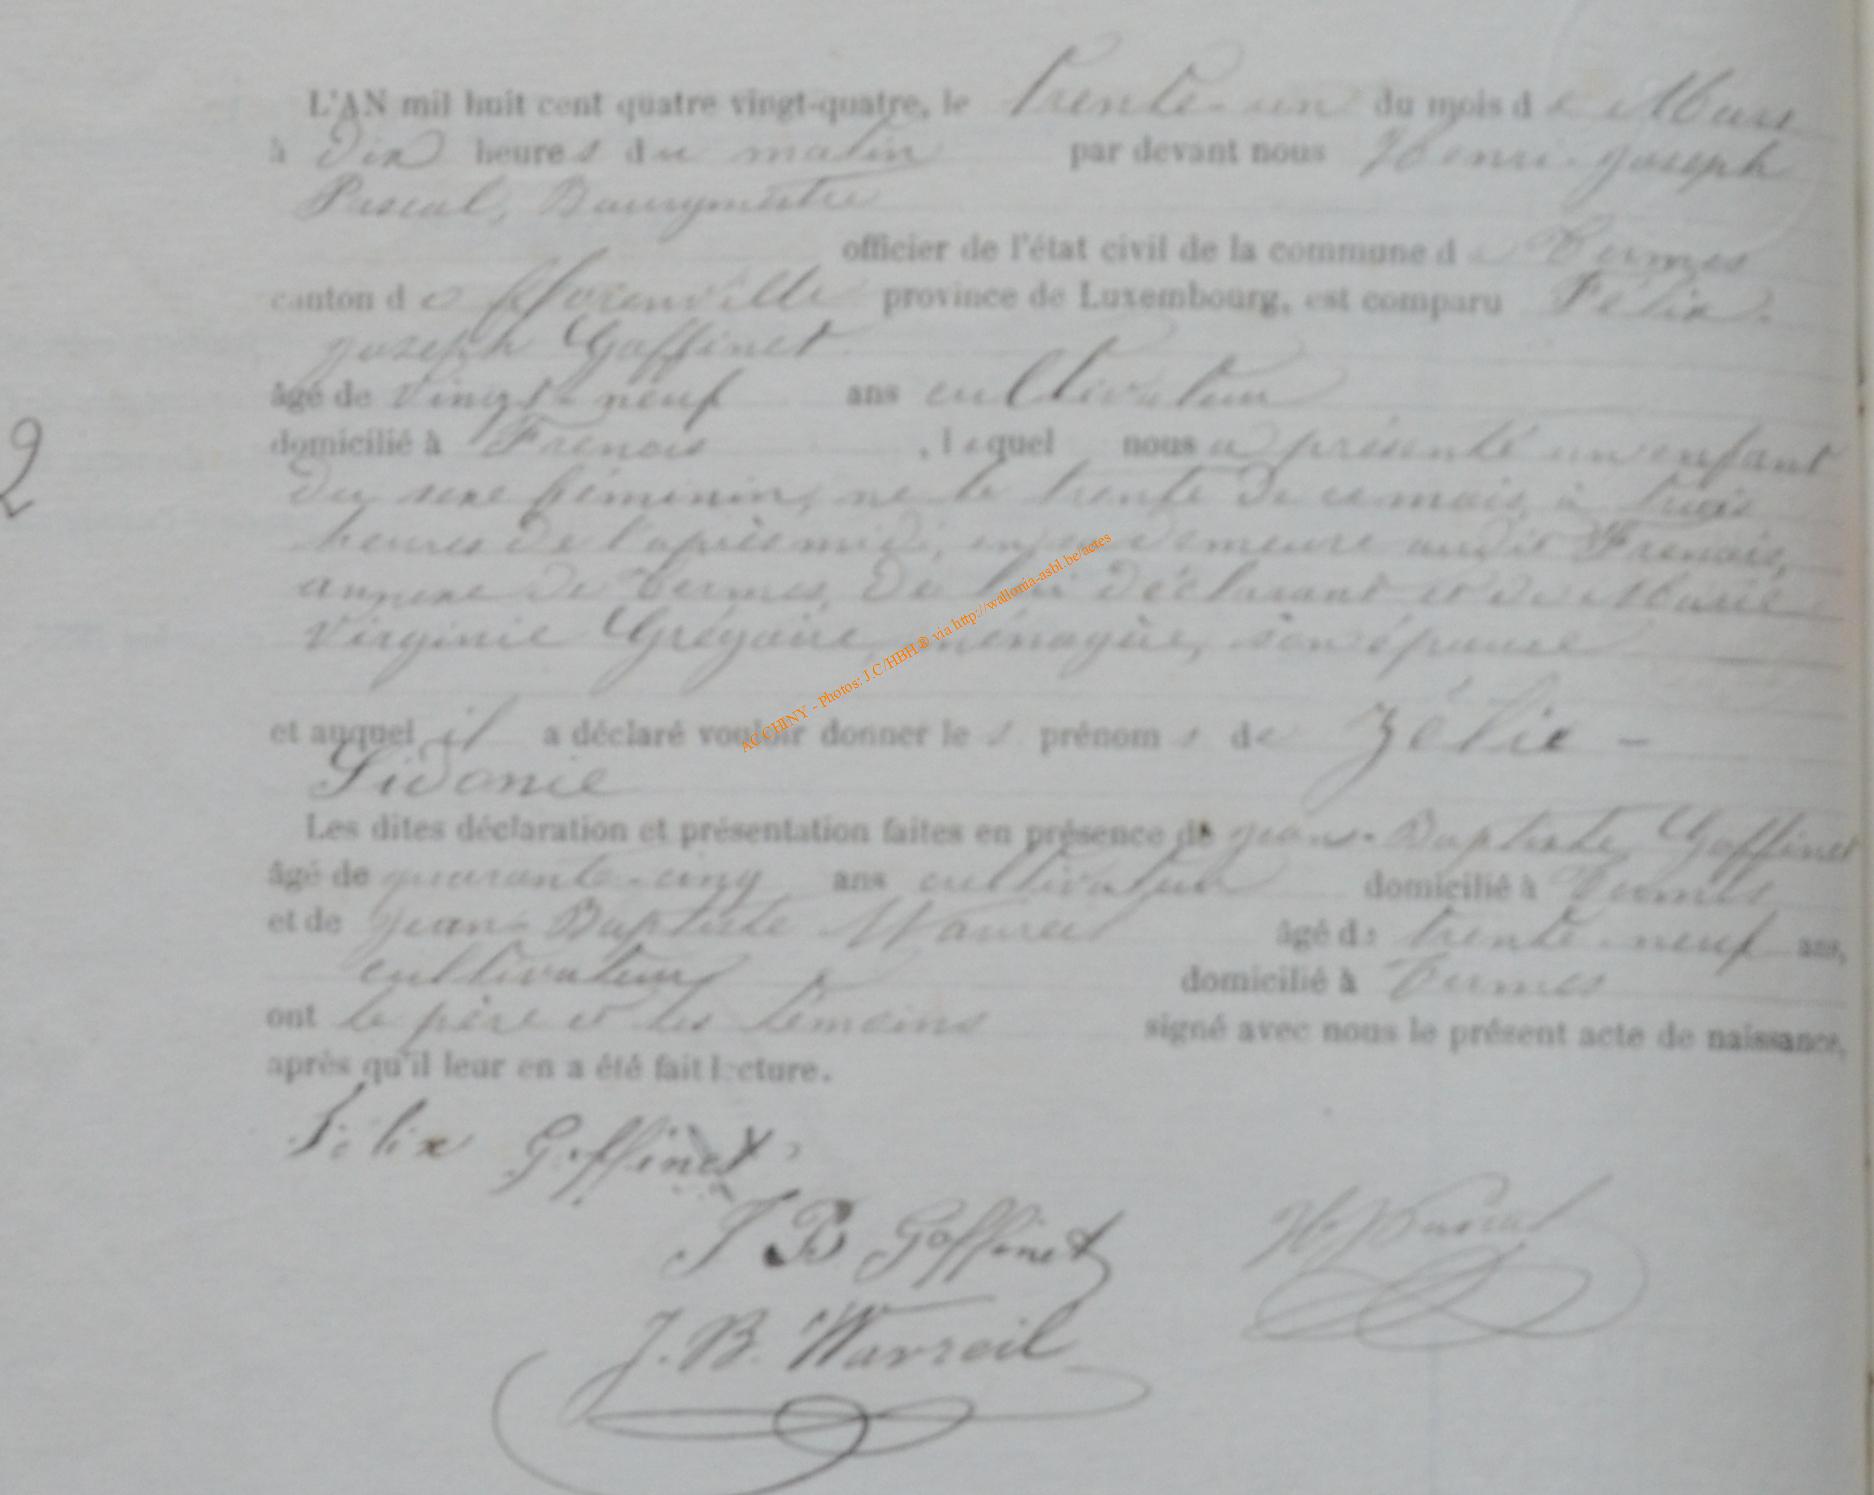 L'AN mil huit cent quatre vingt-quatre, le trente-un du mois de Mars
à dix heures du matin par devant nous Henri-Joseph
Pascal, Bourgmestre
officier de l'état civil de la commune de Termes
canton de Florenville province de Luxembourg, est comparu Félix-
Joseph Goffinet
âgé de vingt-neuf ans cultivateur
domicilié à Frenois, lequel nous a présenté un enfant
du sexe féminin, né le trente de ce mois, à trois
heures de l'après midi, en sa demeure audit Frenois,
annexe de Termes, de lui déclarant et de Marie
Virginie Grégoire, ménagère, son épouse
et auquel il a déclaré vouloir donner les prénoms de Zélie-
Sidonie
Les dites déclaration et présentation faites en présence de Jean-Baptiste Goffinet
âgé de quarante-cinq ans cultivateur domicilié à Termes
et de Jean-Baptiste Wavreil âgé de trente-neuf ans,
cultivateur domicilié à Termes
ont le père et les témoins signé avec nous le présent acte de naissance,
après qu'il leur en a été fait lecture.
2
Félix Goffinet
J B Goffinet
H J Pascal
J. B. Wavreil
ACCHINY - Photos: J.C/HBH ® via http://wallonia-asbl.be/actes